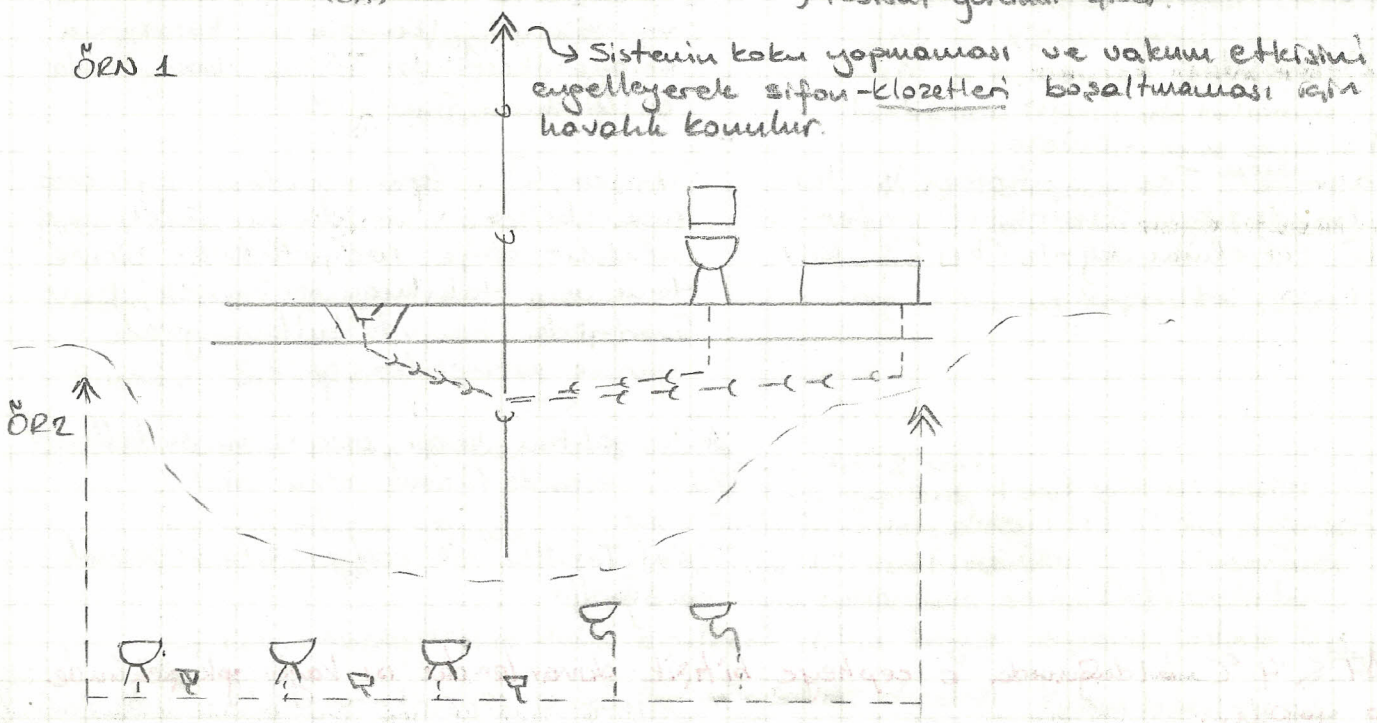 ÖRN 1
Sistemin koku yapmaması ve vakum etkisini
engelleyerek sifon-klozetleri boşaltmaması için
havalık konulur.
ÖR2